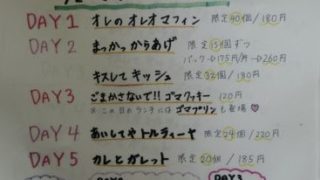 DAY 1 オレのオレオマフィン 限定40個/180円
DAY 2 まっかっからあげ 限定15個ずつ
パック→175円 →260円
キスしてキッシュ 限定32個/180円
DAY3 ごまかさないで!! ゴマクッキー 120円
※この日のランチには ゴマプリン も登場♡
DAY 4 あいしてやトルティーヤ 限定24個/220円
DAY 5 カレとガレット 限定20個/185円